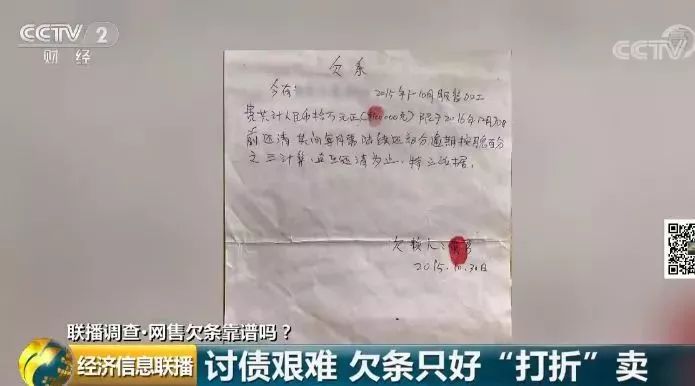 CCTV 2
财经
CCTV
欠条
今有 2015年5-10月服装加工
费共计人民币拾万元正(￥100000元)限于2016年12月30日
前还清 其间每月需陆续还部分逾期按月息百分
之三计算,直至还清为止,特立此据。
欠款人:
2015.10.30日
联播调查·网售欠条靠谱吗?
经济信息联播
讨债艰难 欠条只好“打折”卖